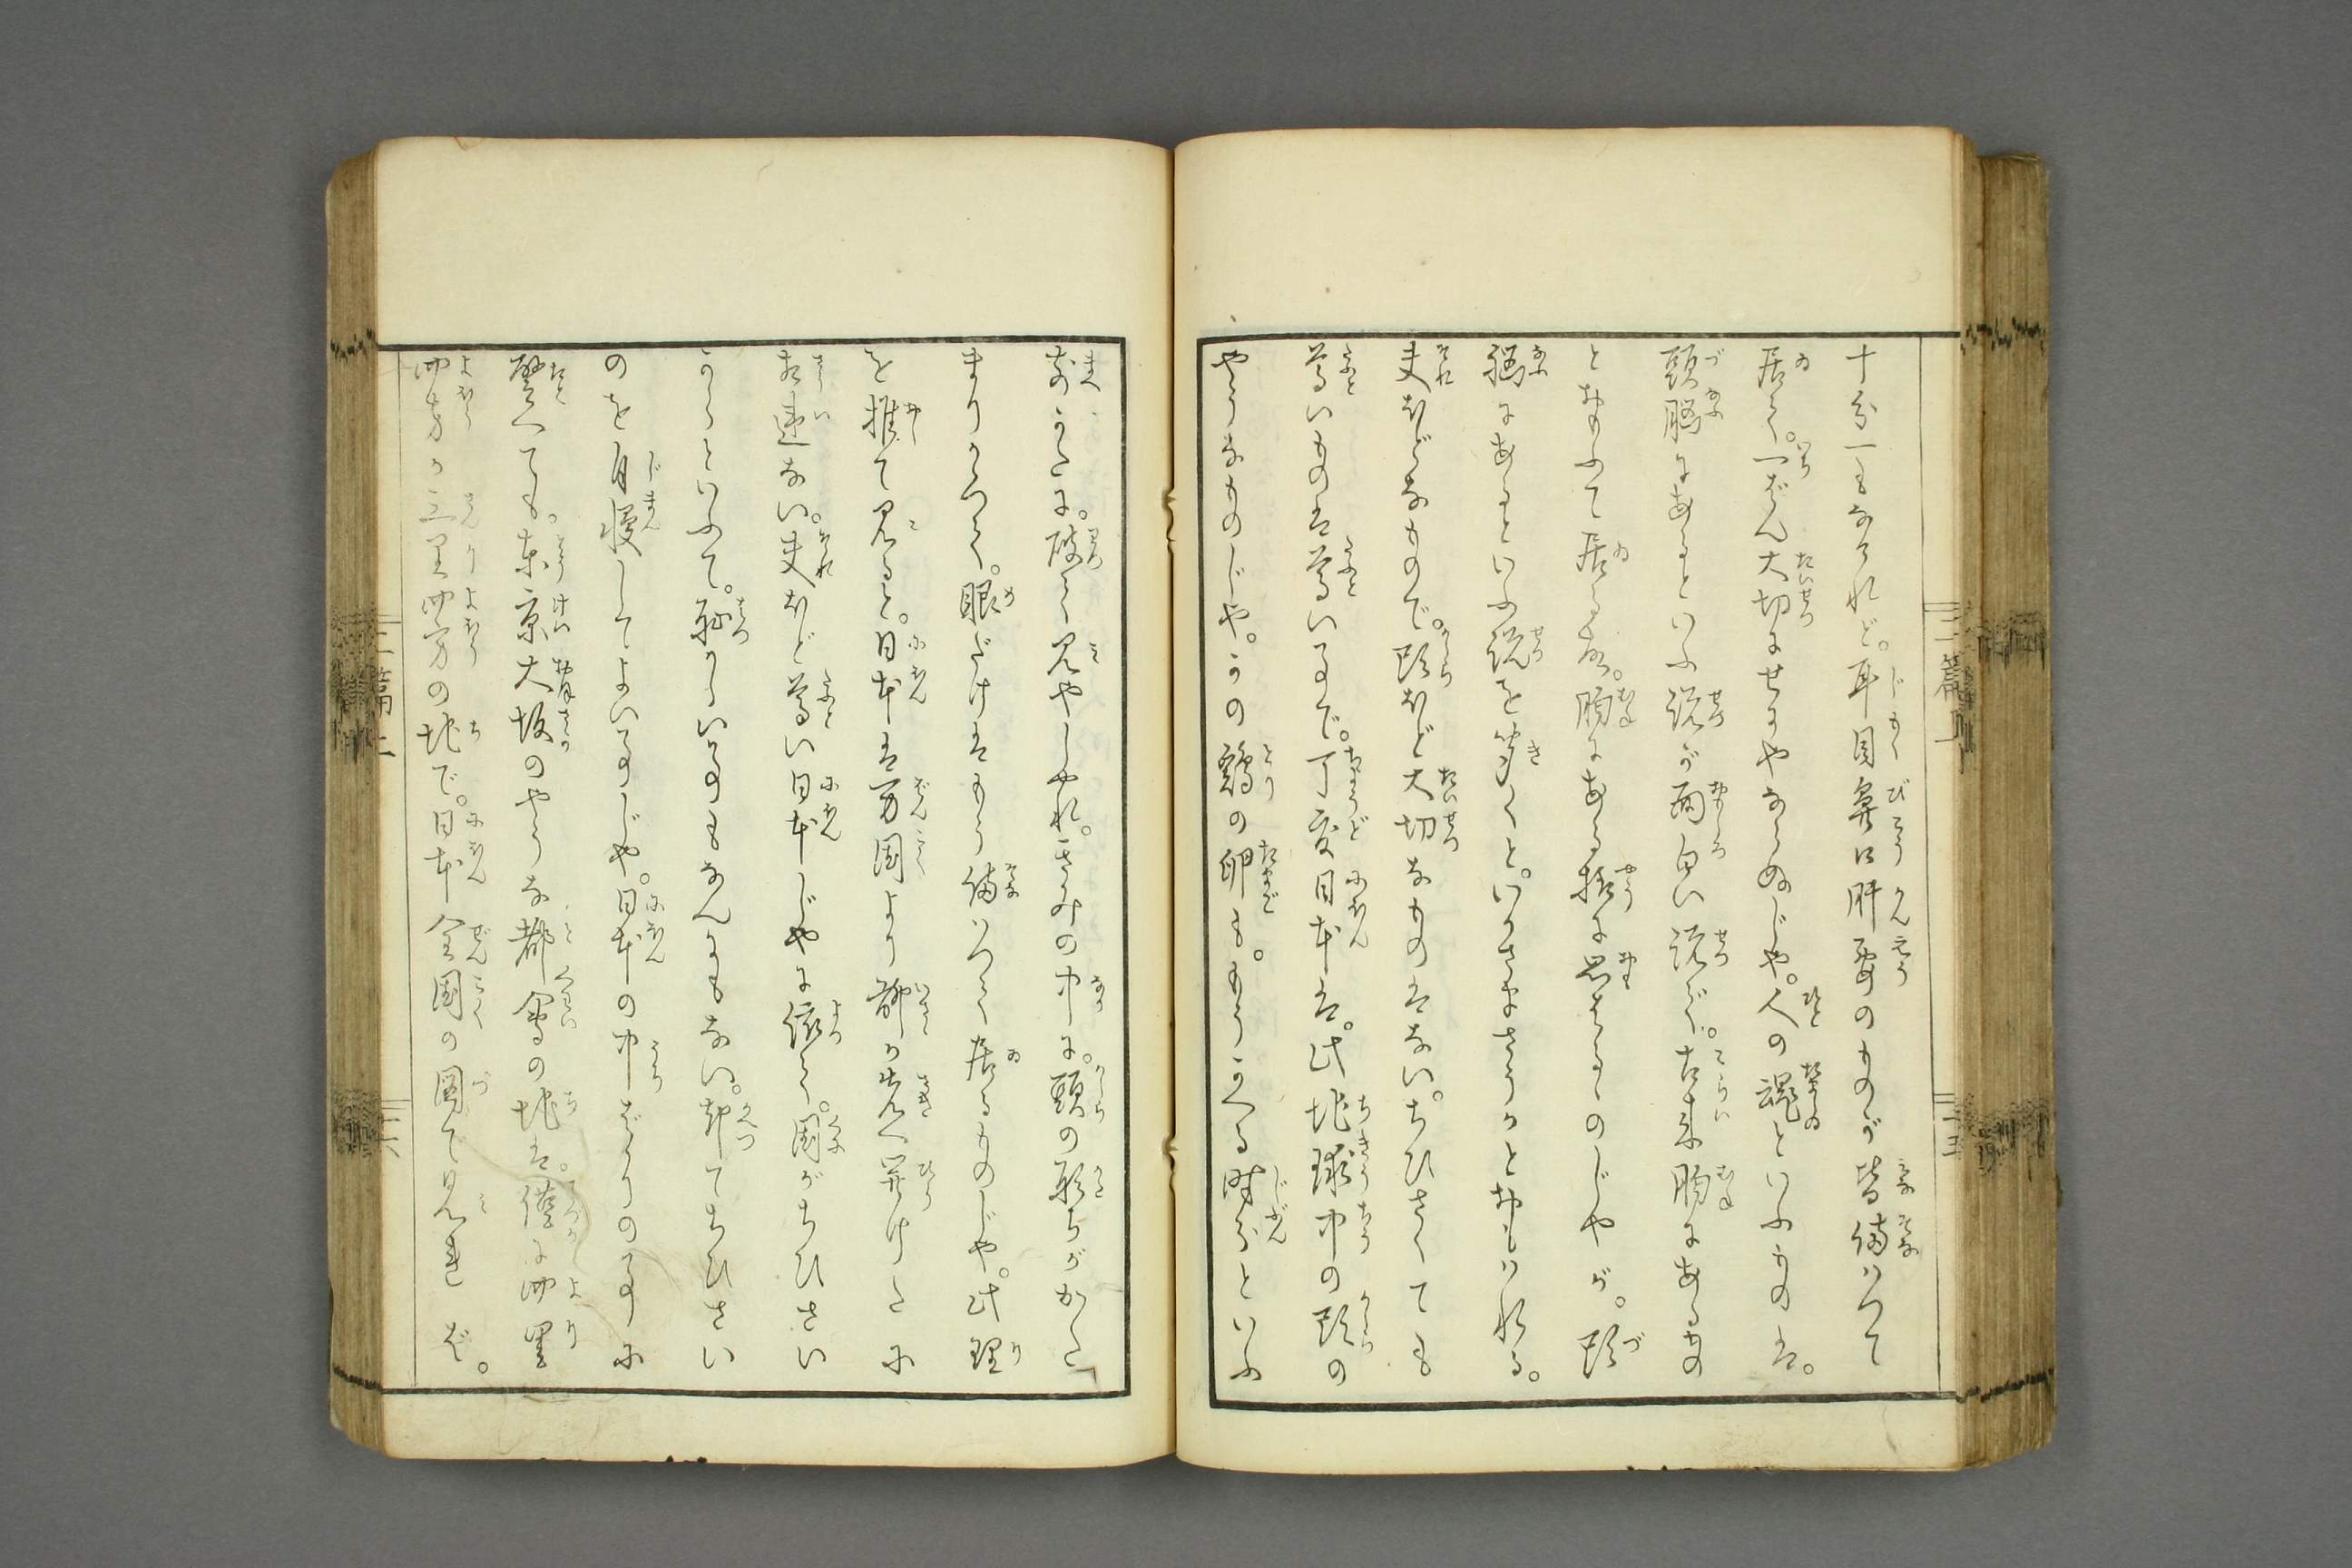 十分一もなけれど。耳目鼻口肝要のものが皆備はつて
居て。一ばん大切にせにやならぬじや。人の魂といふものは。
頭脳にあるといふ説が面白い説ぞ。古来胸にあるもの
とおもふて居る故。胸にある様に思はるゝのじやが。頭
脳にあるといふ説を聞くと。いかさまさうかとおもはれる。
夫ほどなもので。頭ほど大切なものはない。ちひさくても
尊いものは尊いるで。丁度日本は。此地球中の頭の
やうなものじや。かの鶏の卵も。もうかへる時分といふ
三篇上
三五
まへかたに。破て見やしやれ。きみの中に。頭の形ちがかた
まりかつて。眼だけはもう備はつて居るものじや。此理
を推て見ると。日本は万国より聊か先へ開けたに
相違ない。夫ほど尊い日本じやに依て。国がちひさい
からといふて。恥かしい事もなんにもない。却てちひさい
のを自慢してよい事じや。日本の中ばかりの事に
譬へても。東京大坂のやうな都会の地は。僅に四里
四方か三里四方の地で。日本全国の図で見れば。
三篇上
三六